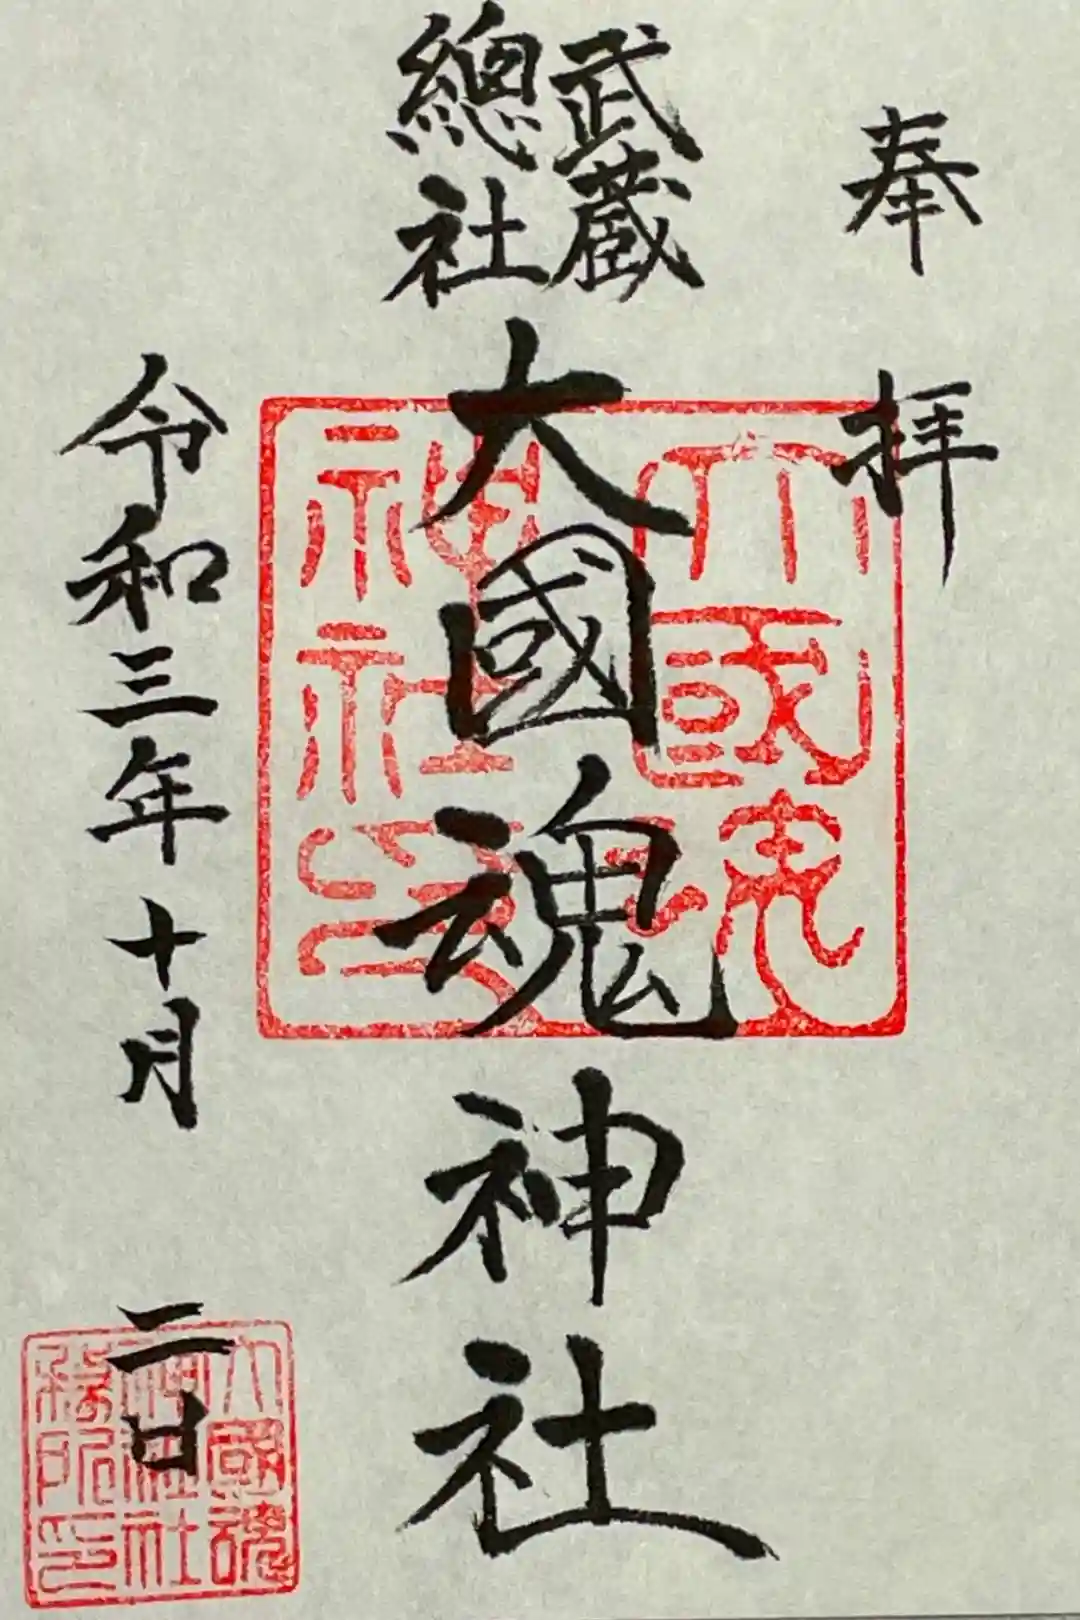 奉拝
武蔵
總社
大國魂神社
令和三年十月二日
大國魂
神社印
大國魂
神社社
務所印